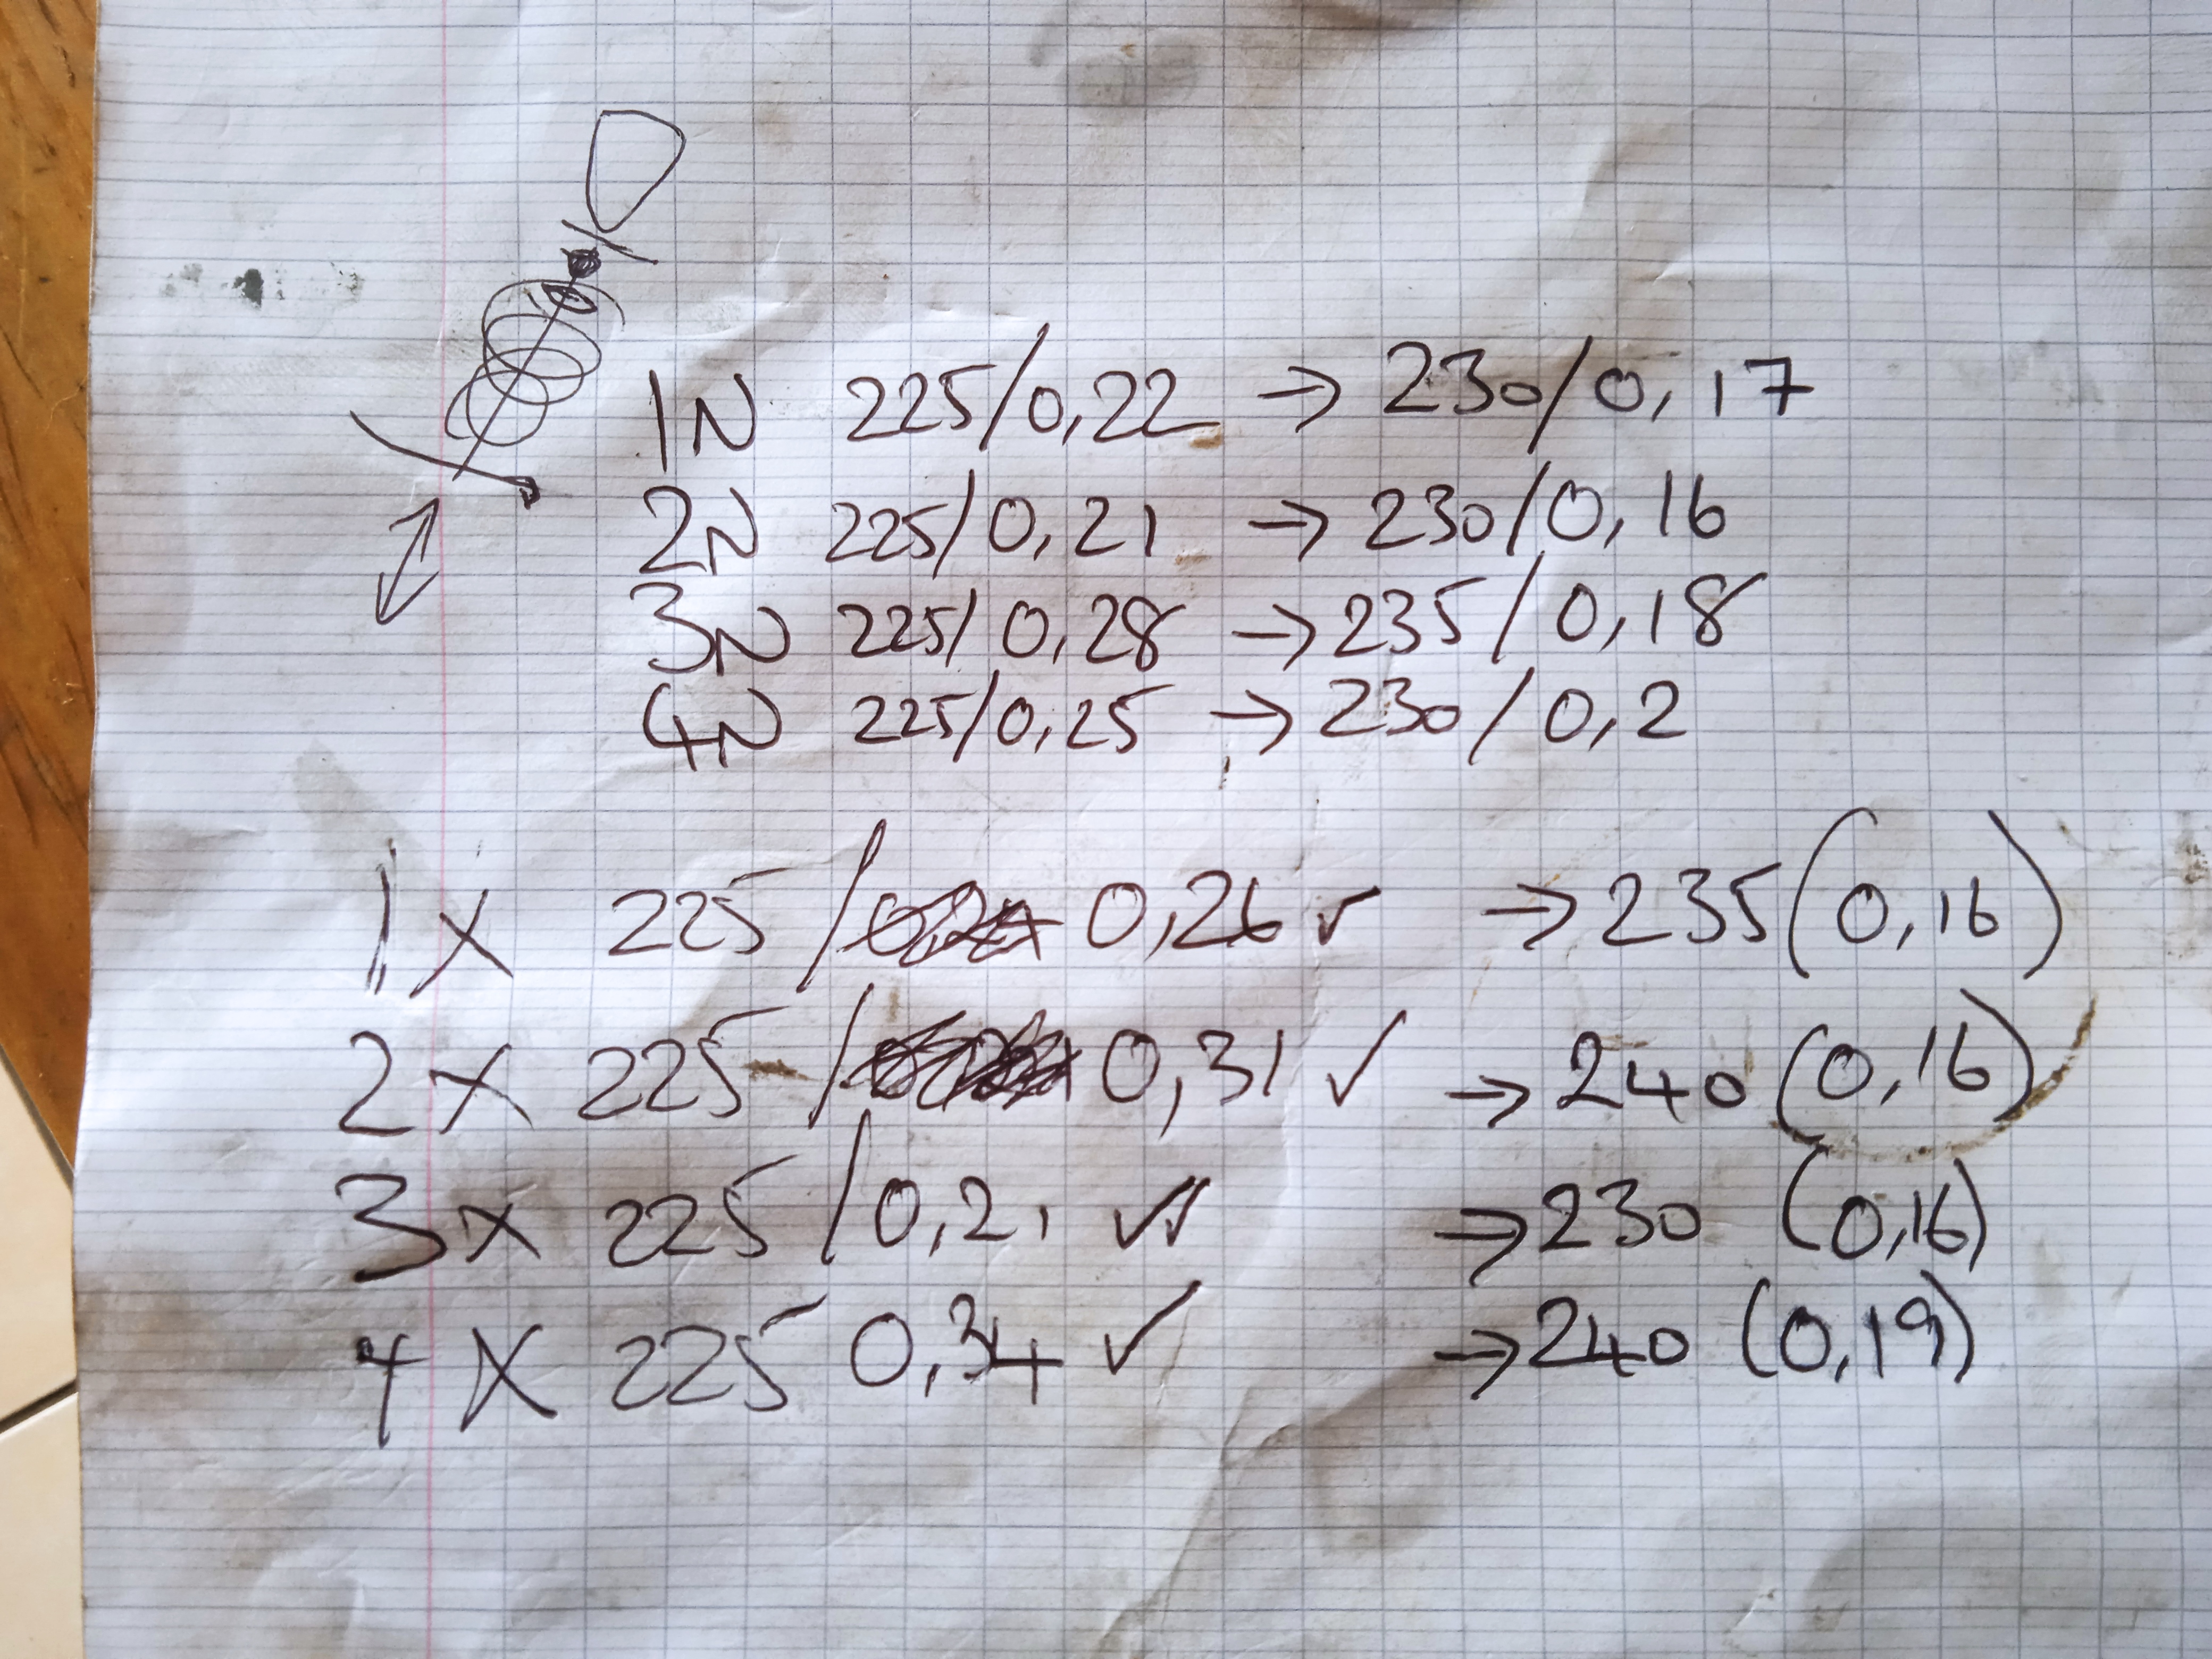 1N 225/0,22 → 230/0,17
2N 225/0,21 → 230/0,16
3N 225/0,28 → 235/0,18
4N 225/0,25 → 230/0,2
1x 225/ 0,26 ✓ → 235 (0,16)
2x 225/ 0,31 ✓ → 240 (0,16)
3x 225/0,21 ✓✓ → 230 (0,16)
4x 225 0,34 ✓ → 240 (0,19)